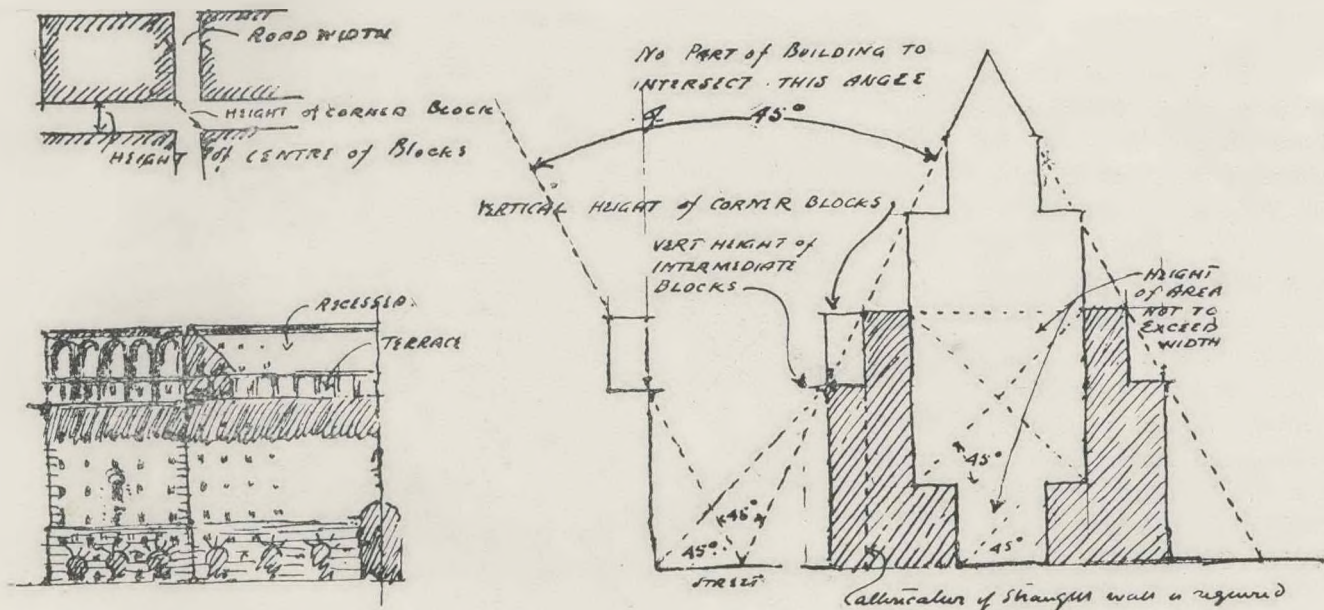 ROAD WIDTH
HEIGHT of CORNER BLOCK
HEIGHT of CENTRE of BLOCKS
NO PART of BUILDING TO
INTERSECT THIS ANGLE
45°
VERTICAL HEIGHT of CORNER BLOCKS
VERT HEIGHT of
INTERMEDIATE
BLOCKS
HEIGHT
of AREA
NOT TO
EXCEED
WIDTH
RECESSED
TERRACE
45°
45°
45°
45°
STREET
of wall is required